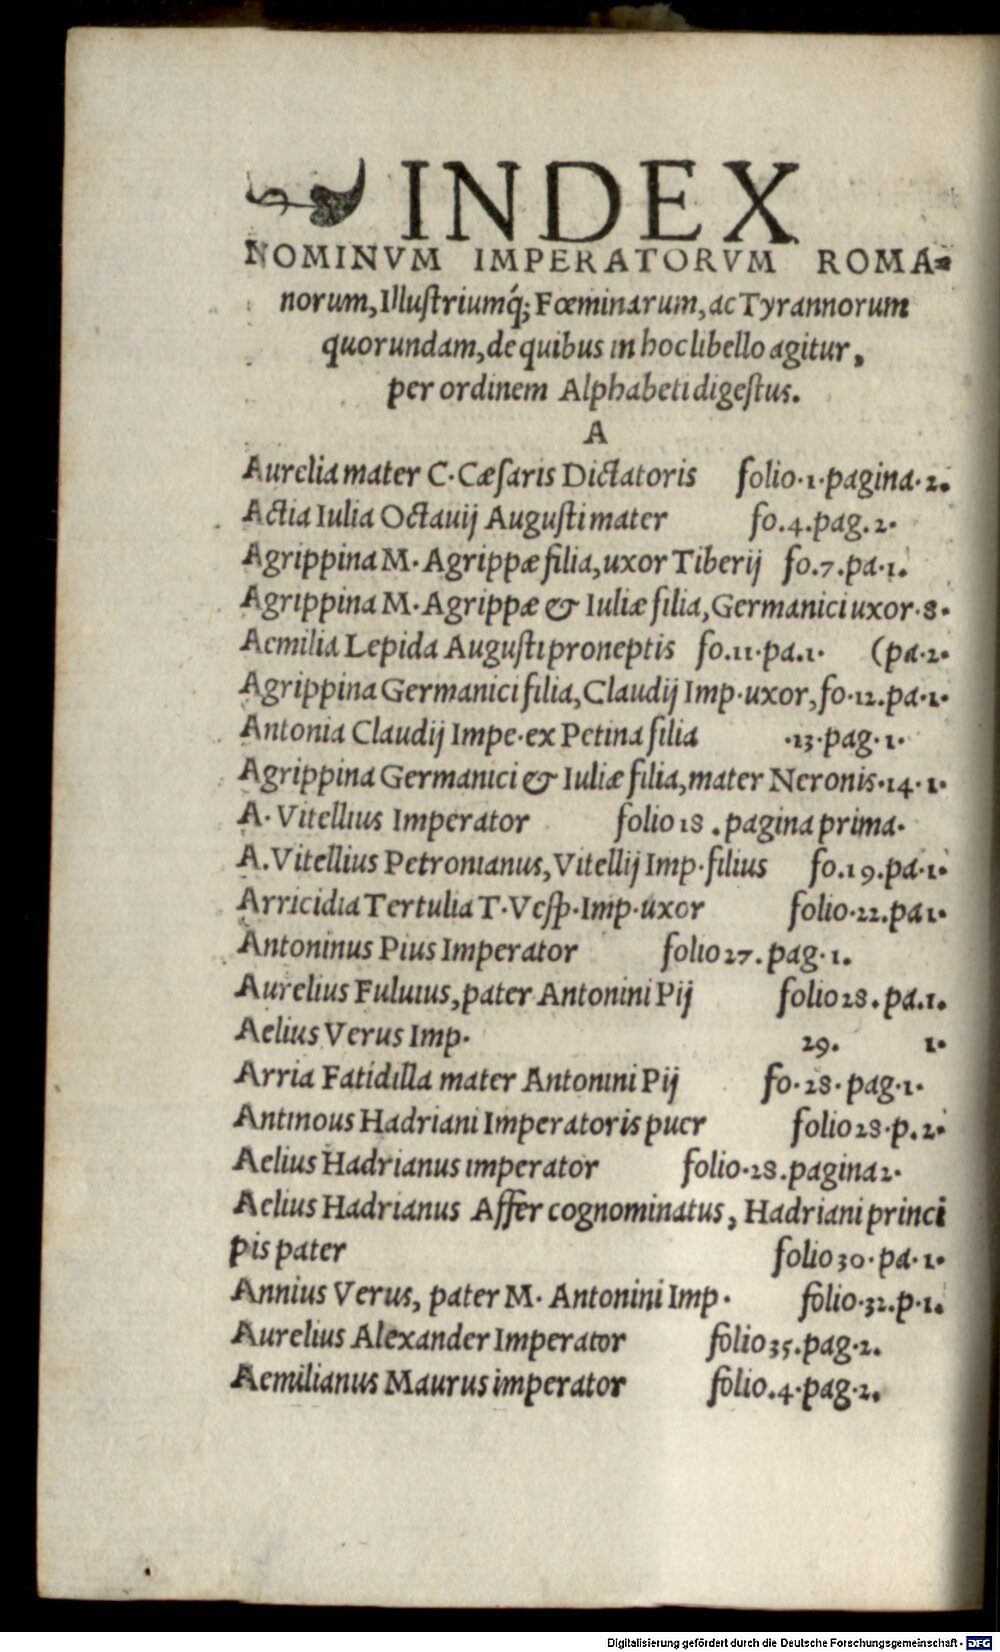 INDEX
NOMINVM IMPERATORVM ROMA=
norum, Illuſtriumq́; Fœminarum, ac Tyrannorum
quorundam, de quibus in hoc libello agitur,
per ordinem Alphabeti digeſtus.
A
Aurelia mater C. Cæſaris Dictatoris folio.1.pagina.2.
Actia Iulia Octauij Auguſti mater fo.4.pag.2.
Agrippina M. Agrippæ filia, uxor Tiberij fo.7.pa.1.
Agrippina M. Agrippæ & Iuliæ filia, Germanici uxor.8.
Aemilia Lepida Auguſti proneptis fo.11.pa.1. (pa.2.
Agrippina Germanici filia, Claudij Imp.uxor, fo.12.pa.1.
Antonia Claudij Impe.ex Petina filia .13.pag.1.
Agrippina Germanici & Iuliæ filia, mater Neronis.14.1.
A. Vitellius Imperator folio 18.pagina prima.
A. Vitellius Petronianus, Vitellij Imp.filius fo.19.pa.1.
Arricidia Tertulia T.Veſp.Imp.uxor folio.22.pa 1.
Antoninus Pius Imperator folio 27.pag.1.
Aurelius Fuluius, pater Antonini Pij folio 28.pa.1.
Aelius Verus Imp. 29. 1.
Arria Fatidilla mater Antonini Pij fo.28.pag.1.
Antinous Hadriani Imperatoris puer folio 28.p.2.
Aelius Hadrianus imperator folio.28.pagina 2.
Aelius Hadrianus Affer cognominatus, Hadriani princi
pis pater folio 30.pa.1.
Annius Verus, pater M. Antonini Imp. folio.32.p.1.
Aurelius Alexander Imperator folio 35.pag.2.
Aemilianus Maurus imperator folio.4.pag.2.
Digitalisierung gefördert durch die Deutsche Forschungsgemeinschaft - DFG